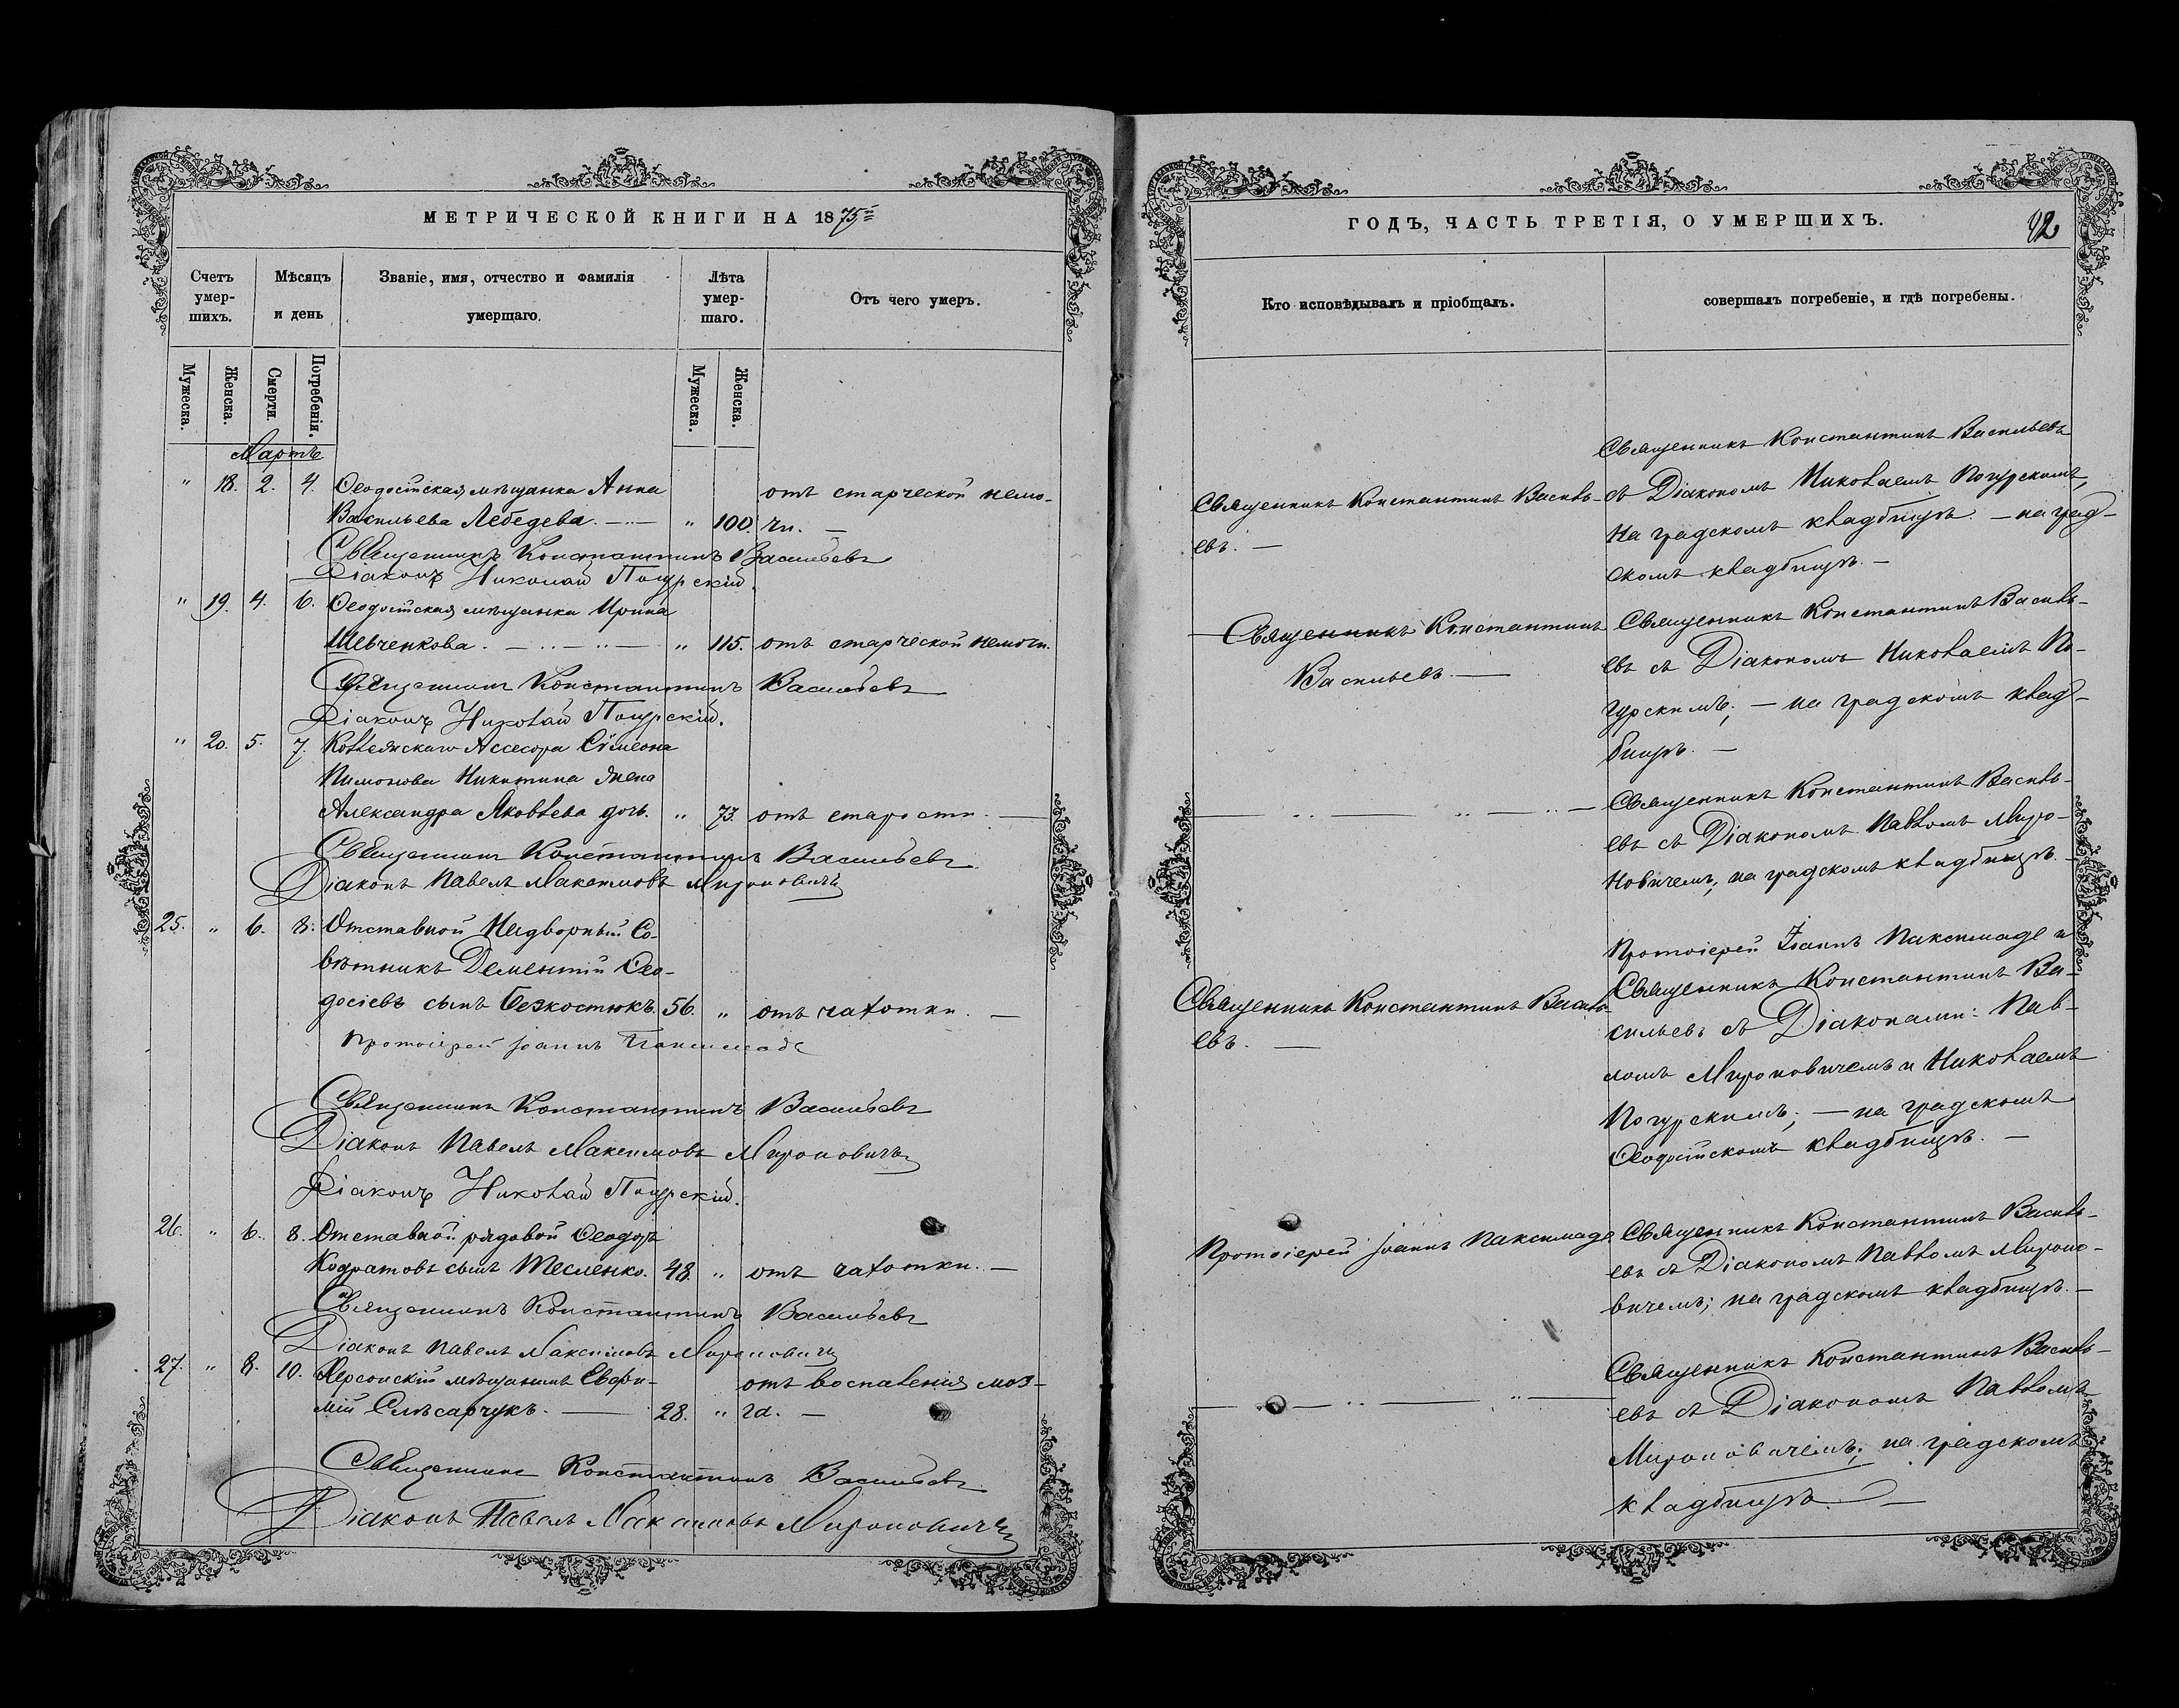 МЕТРИЧЕСКОЙ КНИГИ НА 1875й
Счетъ умер- шихъ.
Мѣсяцъ и день
Званіе, имя, отчество и фамилія умершаго.
Лѣта умер- шаго.
Отъ чего умеръ.
Мужеска. Женска. Смерти. Погребенія. Мужеска. Женска.
Мартъ
" 18. 2. 4. Ѳеодосійская мѣщанка Анна отъ старческой немо-
Васильева Лебедева. " 100. чи.
Священникъ Константинъ Васильевъ
Діаконъ Николай Погурскій.
" 19. 4. 6. Ѳеодосійская мѣщанка Ирина
Шевченкова. " 115. отъ старческой немочи.
Священникъ Константинъ Васильевъ
Діаконъ Николай Погурскій.
" 20. 5. 7. Коллежскаго Ассесора Сѵмеона
Пимонова Никитина жена
Александра Яковлева дочь. " 73. отъ старости.
Священникъ Константинъ Васильевъ
Діаконъ Павелъ Максимовъ Мироновичъ
25. " 6. 8. Отставной Надворный Со-
вѣтникъ Дементій Ѳео-
досіевъ сынъ Безкостюкъ. 56. " отъ чахотки.
Протоіерей Іоаннъ Паксимаде
Священникъ Константинъ Васильевъ
Діаконъ Павелъ Максимовъ Мироновичъ
Діаконъ Николай Погурскій.
26. " 6. 8. Отставной рядовой Ѳеодоръ
Кодратовъ сынъ Тесленко. 48. " отъ чахотки.
Священникъ Константинъ Васильевъ
Діаконъ Павелъ Максимовъ Мироновичъ
27. " 8. 10. Херсонскій мѣщанинъ Евфи- отъ воспаленія моз-
мій Слѣсарчукъ. 28. " га.
Священникъ Константинъ Васильевъ
Діаконъ Павелъ Максимовъ Мироновичъ
ГОДЪ, ЧАСТЬ ТРЕТІЯ, О УМЕРШИХЪ.
92
Кто исповѣдывалъ и пріобщалъ.
совершалъ погребеніе, и гдѣ погребены.
Священникъ Константинъ Василь-
евъ.
Священникъ Константинъ Васильевъ
съ Діакономъ Николаемъ Погурскимъ,
на градскомъ кладбищѣ. — на град-
скомъ кладбищѣ. —
Священникъ Константинъ
Васильевъ.
Священникъ Константинъ Василь-
евъ съ Діакономъ Николаемъ По-
гурскимъ; — на градскомъ клад-
бищѣ. —
Священникъ Константинъ Василь-
евъ съ Діакономъ Павломъ Миро-
новичемъ; на градскомъ кладбищѣ. —
Священникъ Константинъ Василь-
евъ. —
Протоіерей Іоаннъ Паксимаде и
Священникъ Константинъ Ва-
сильевъ съ Діаконами: Пав-
ломъ Мироновичемъ и Николаемъ
Погурскимъ; — на градскомъ
Ѳеодосійскомъ кладбищѣ. —
Протоіерей Іоаннъ Паксимаде
Священникъ Константинъ Василь-
евъ съ Діакономъ Павломъ Мироно-
вичемъ; на градскомъ кладбищѣ. —
Священникъ Константинъ Василь-
евъ съ Діакономъ Павломъ
Мироновичемъ; на градскомъ
кладбищѣ. —